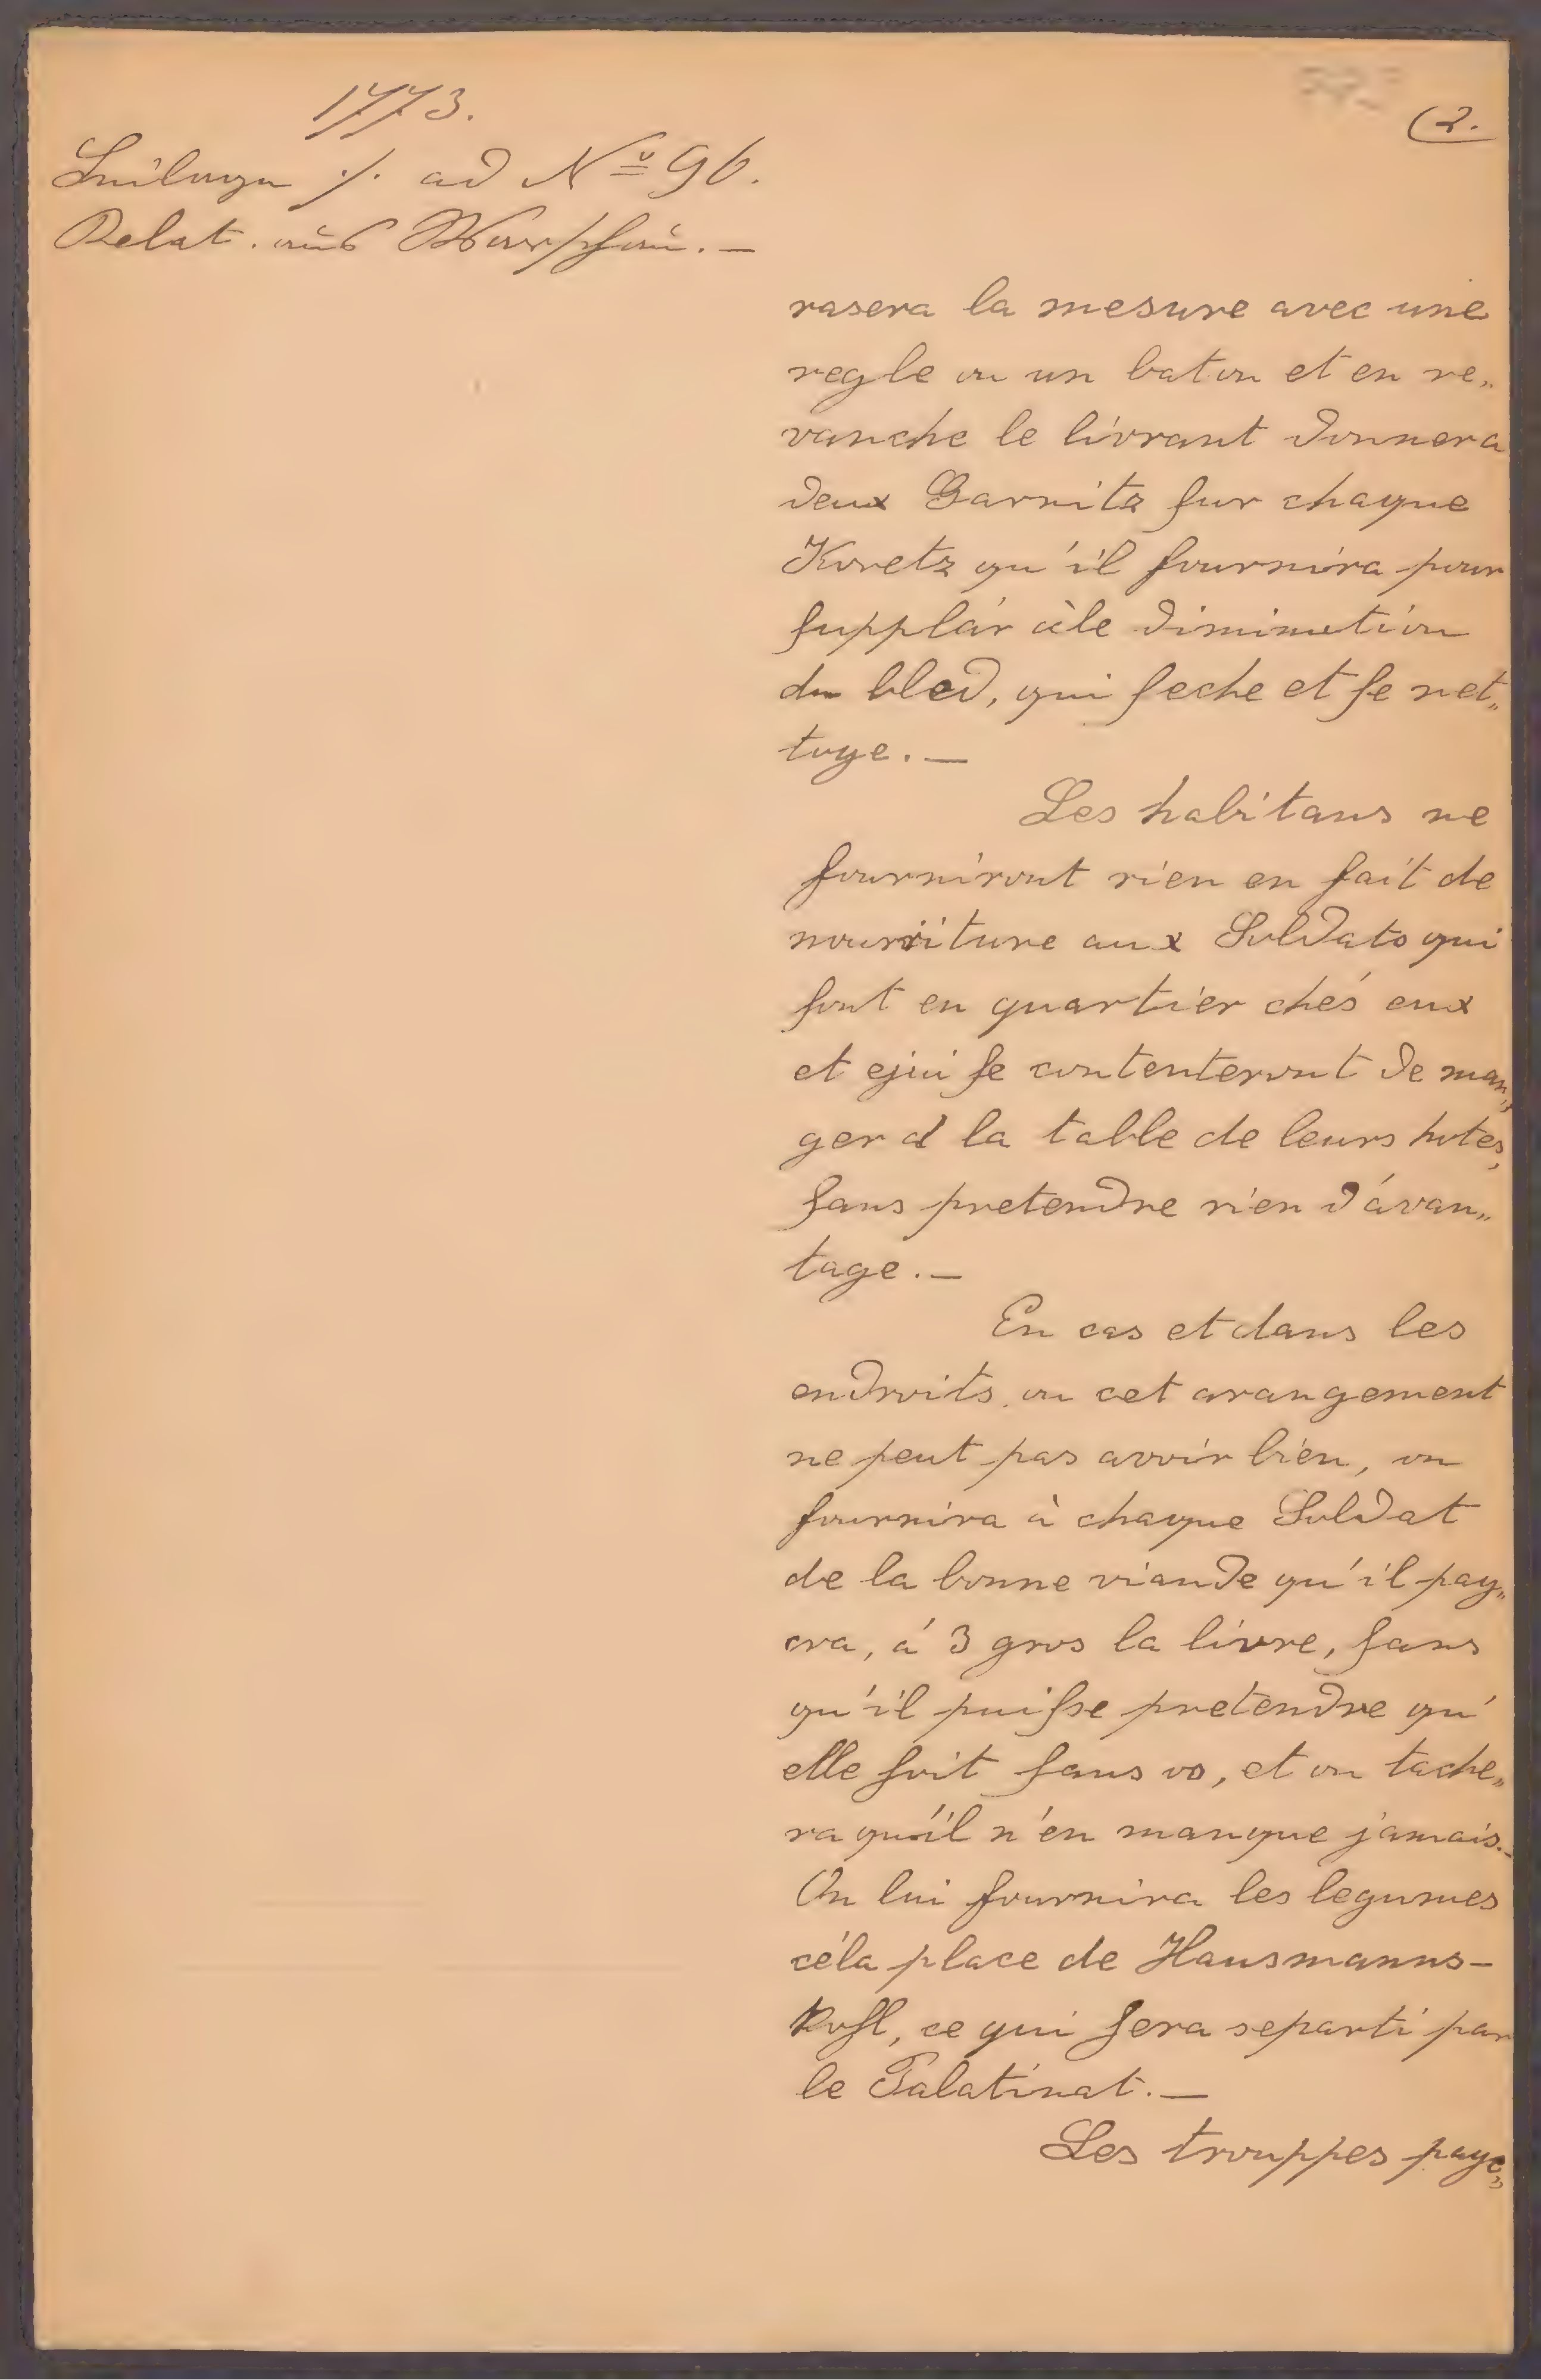 1773.
(2.
Beilage ·/. ad No 96.
Relat. aus Warschau. —
rasera la mesure avec une
regle ou un baton et en re„
vanche le livrant donnera
deux Garnitz sur chaque
Koretz qu'il fournira pour
supplár àle diminution
du bled, qui seche et se net„
toye. —
Les habitans ne
fourniront rien en fait de
nourriture aux Soldats qui
sont en quartier chés eux
et qui se contenteront de man„
ger à la table de leurs hotes,
sans pretendre rien d'ávan„
tage. —
En cas et dans les
endroits ou cet arangement
ne peut pas avoir lieu, on
fournira à chaque Soldat
de la bonne viande qu'il pay„
era, á 3 gros la livre, sans
qu'il puisse pretendre qu'
elle soit sans os, et on tache„
ra qu'il n'en manque jamais. –
On lui fournira les legumes
à la place de Hausmanns-
Kost, ce qui sera reparti par
le Palatinat. —
Les trouppes paye„